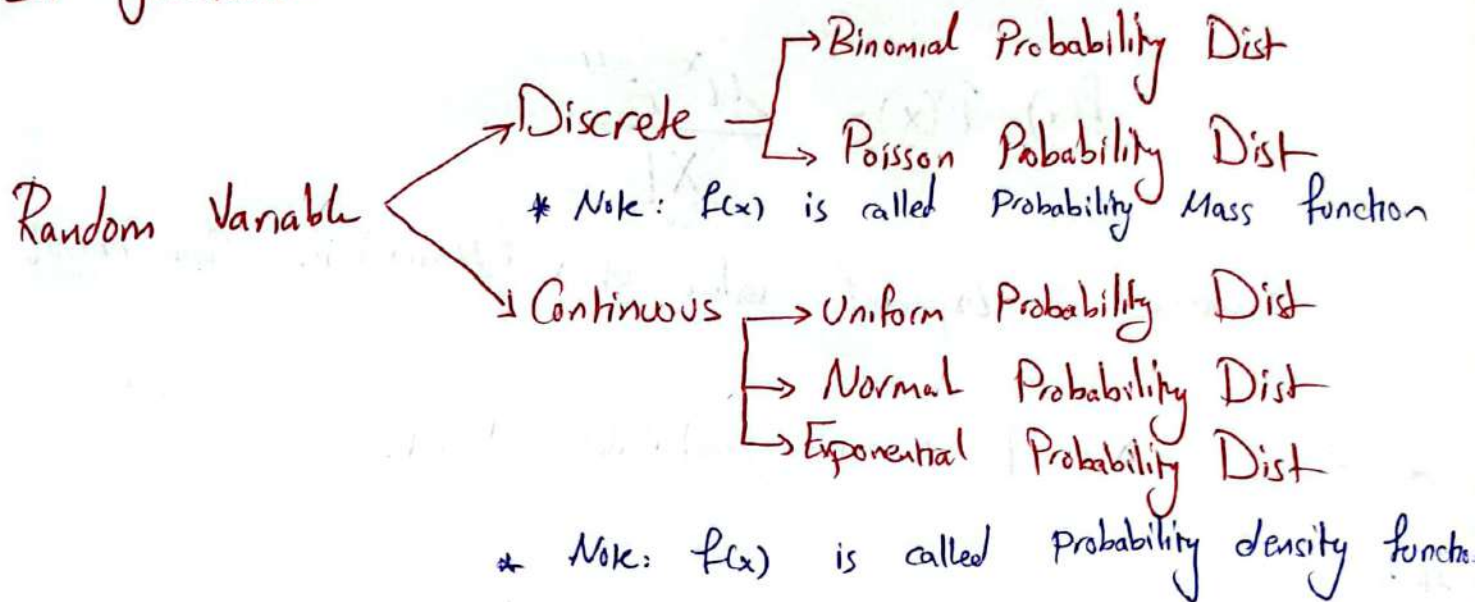 Binomial Probability Dist
Discrete
Poisson Pobability Dist
Random Variable
* Note: f(x) is called Probability Mass function
Continuous
Uniform Probability Dist
Normal Probability Dist
Exponential Probability Dist
* Note: f(x) is called Probability density functio